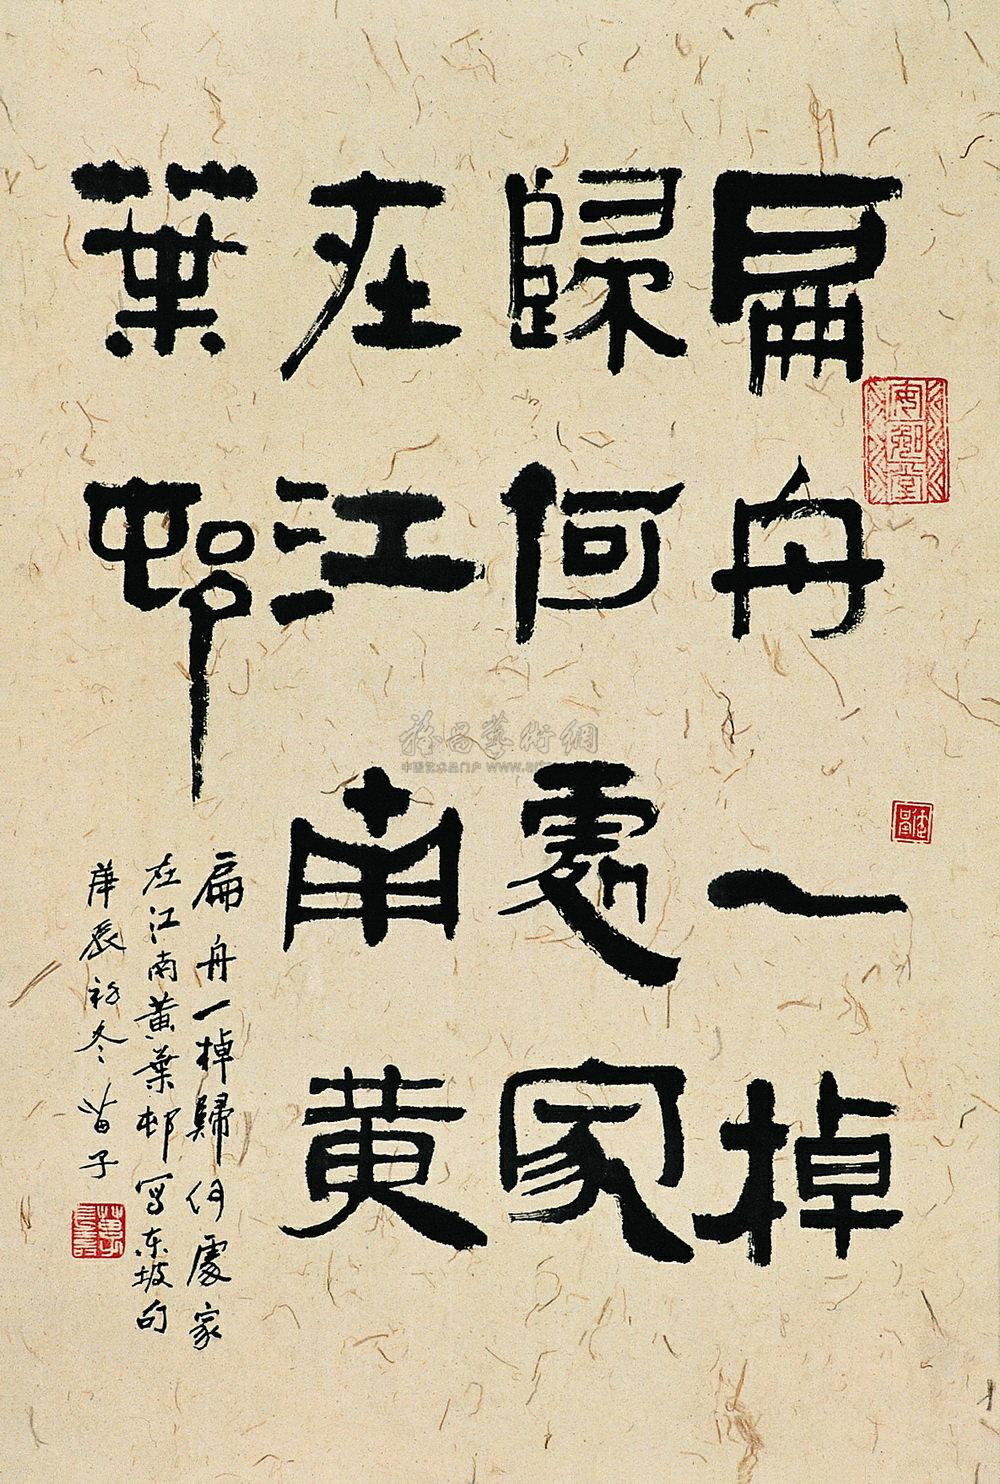 扁舟一棹
歸何處家
在江南黄
葉邨
扁舟一棹歸何處家
在江南黄葉邨写东坡句
庚辰初冬苗子
安鄉堂
中国艺术品门户 www.art